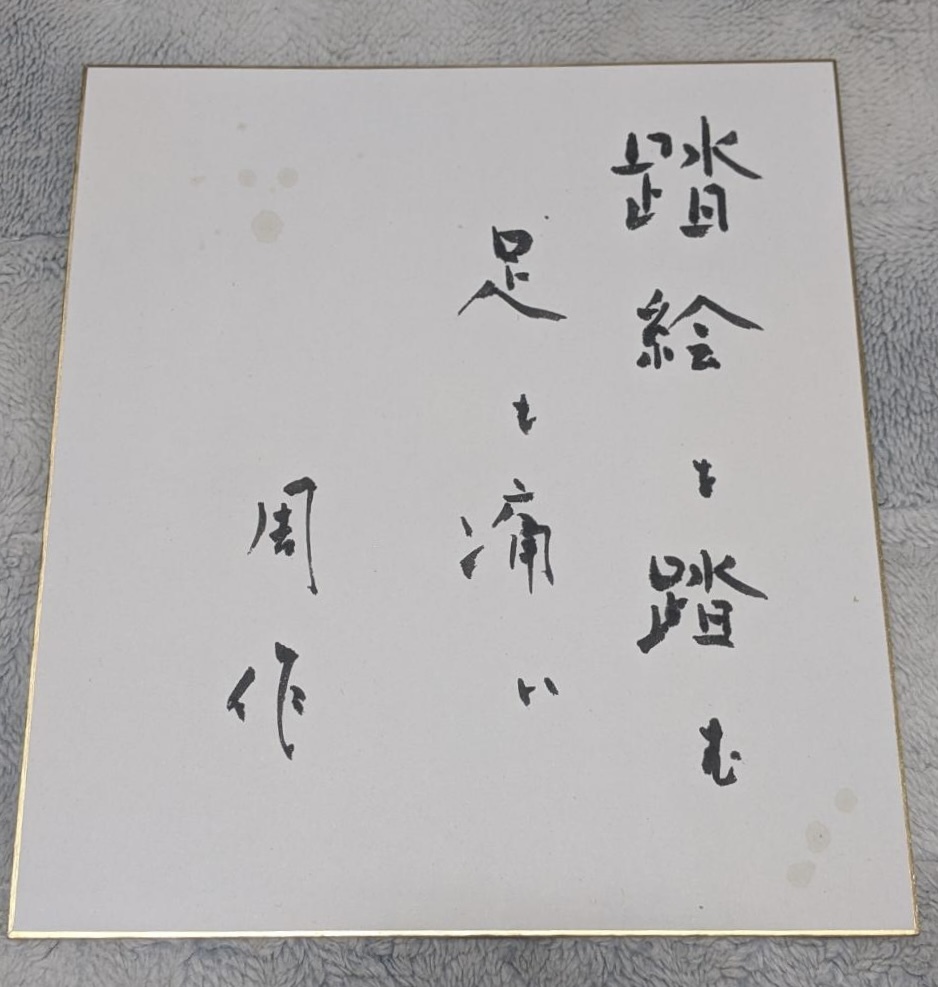 踏絵を踏む
足も痛い
周作